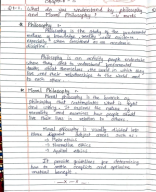 Q.1. What do you understand by philosophy
and Moral Philosophy?
Philosophy :-
Philosophy is the study of the fundamental
nature of knowledge, reality and existence
especially when considered as an academic
discipline.
Philosophy is an activity people undertake
when they seek to understand fundamental
truths about themselves, the world in which they
live and their relationships to the world and
to each other.
Moral Philosophy :-
Moral philosophy is the branch of
philosophy that contemplates what is right
and wrong. It explores the nature of
morality and examines how people should
live their lives in relation to others.
Moral philosophy is usually divided into
three different subject areas
Meta ethics
Normative ethics
Applied ethics
It provides guidelines for determining
how to settle conflicts and optimise
mutual benefit.